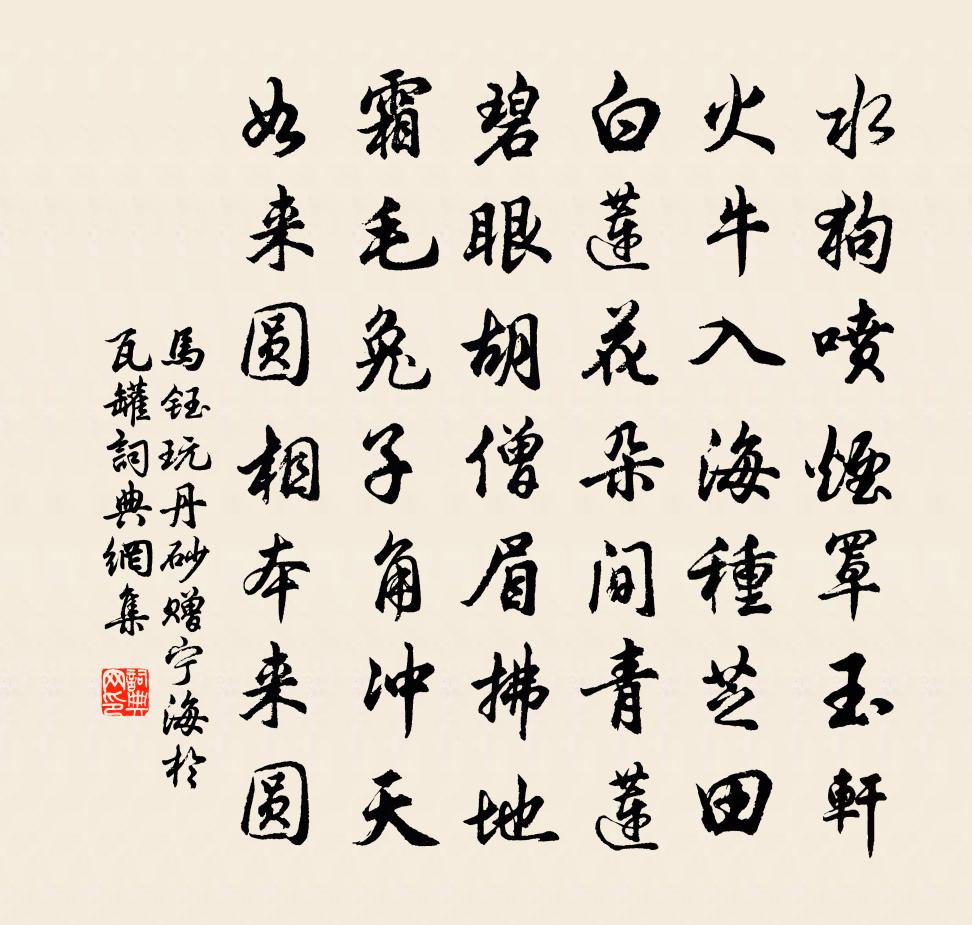 水狗喷烟罩玉軒
火牛入海種芝田
白蓮花朵间青蓮
碧眼胡僧眉拂地
霜毛兔子角冲天
如来圆相本来圆
馬鈺玩丹砂赠宁海於
瓦罐詞典網集
詞典网印